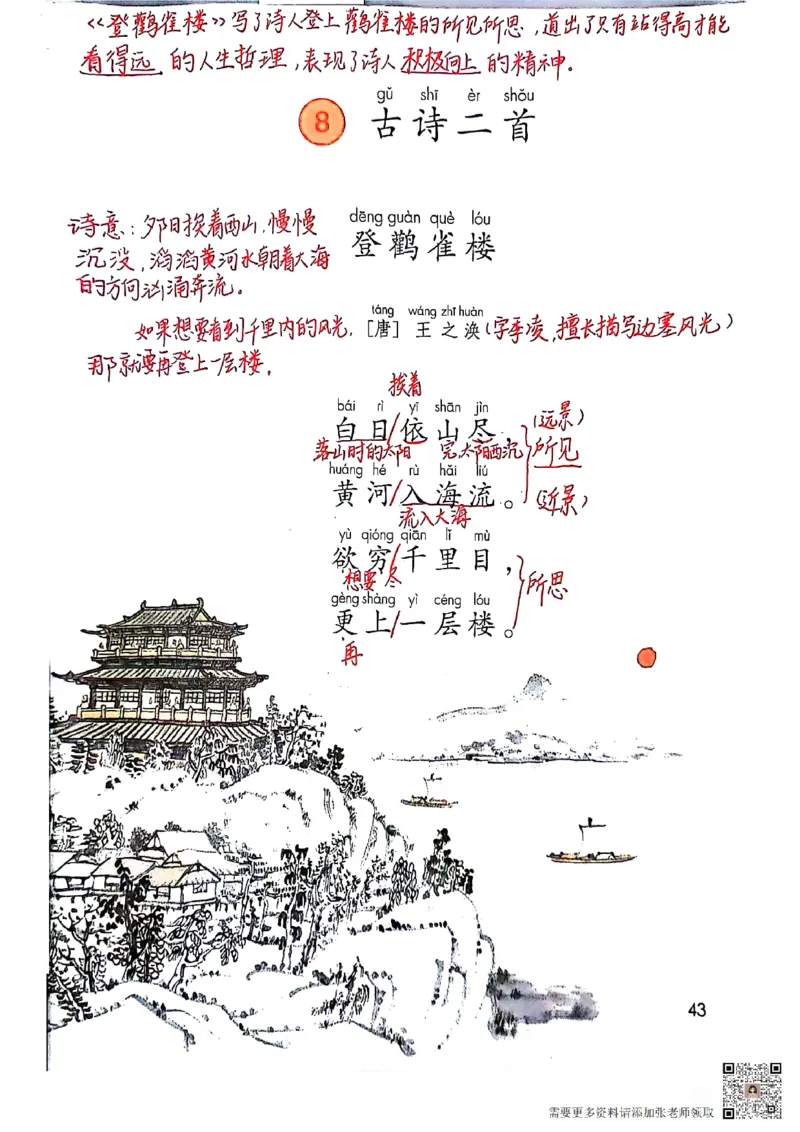 《登鹳雀楼》写了诗人登上鹳雀楼的所见所思,道出了只有站得高才能
看得远 的人生哲理,表现了诗人 积极向上 的精神.
gǔ shī èr shǒu
8 古诗二首
诗意:夕阳挨着西山,慢慢
沉没,滔滔黄河水朝着大海
的方向汹涌奔流。
dēng guàn què lóu
登鹳雀楼
如果想要看到千里内的风光,
那就要再登上一层楼.
táng wáng zhī huàn
[唐] 王之涣(字季凌,擅长描写边塞风光)
挨着
bái rì yī shān jìn
白日/依山尽,
(远景)
落山时的太阳 完,太阳西沉
所见
huáng hé rù hǎi liú
黄河/入海流。
(近景)
流入大海
yù qióng qiān lǐ mù
欲穷/千里目,
想要 尽
所思
gèng shàng yì céng lóu
更上/一层楼。
再
43
需要更多资料请添加张老师领取